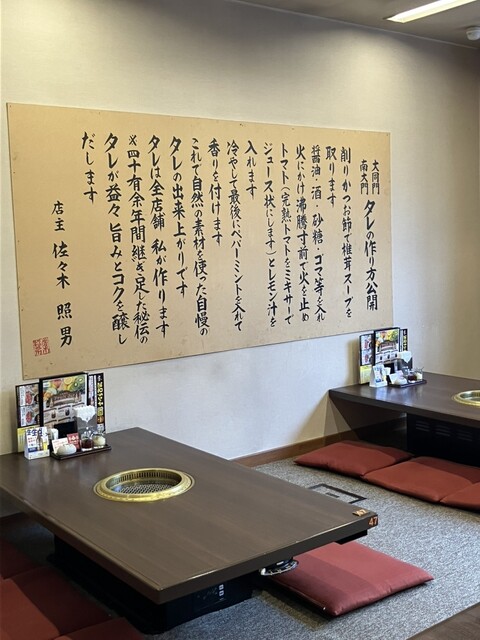 大同門
南大門
タレの作り方公開
削りかつお節で椎茸スープを
取ります
醤油・酒・砂糖・ゴマ等を入れ
火にかけ沸騰寸前で火を止め
トマト(完熟トマトをミキサーで
ジュース状にします)とレモン汁を
入れます
冷やして最後にペパーミントを入れて
香りを付けます
これで自然の素材を使った自慢の
タレの出来上がりです
タレは全店舗私が作ります
※四十有余年間継ぎ足した秘伝の
タレが益々旨みとコクを醸し
だします
店主 佐々木 照男
47